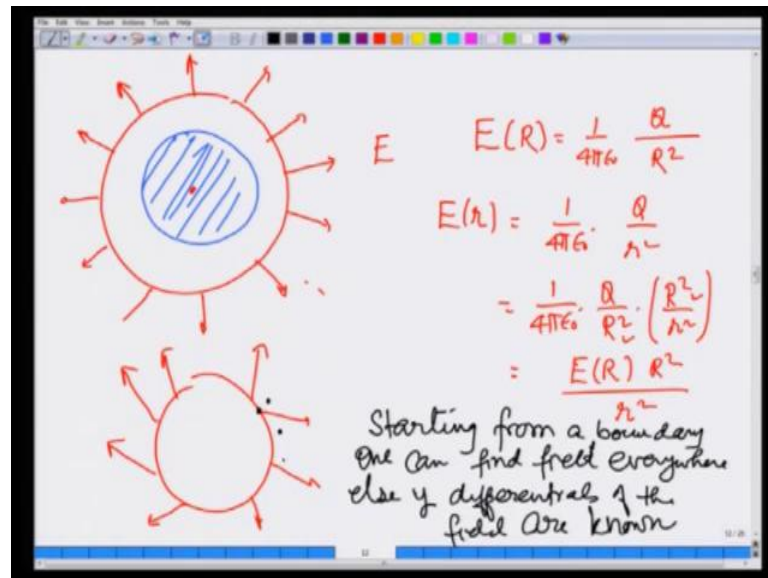 File Edit View Insert Actions Tools Help
E
E(R) = 1/4πε₀ Q/R²
E(r) = 1/4πε₀ · Q/r²
= 1/4πε₀ · Q/R² · (R²/r²)
= E(R) R²/r²
Starting from a boundary
One can find field everywhere
else if differentials of the
field are known
12